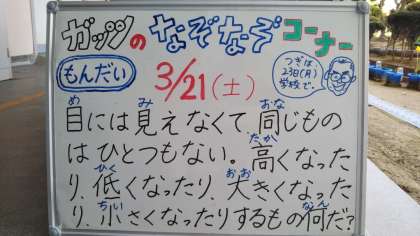 ガッツの なぞなぞ コーナー
もんだい
3/21(土)
つぎは
23日(月)
学校で。
目には見えなくて、同じもの
はひとつもない。高くなった
り、低くなったり、大きくなった
り、小さくなったりするもの何だ?